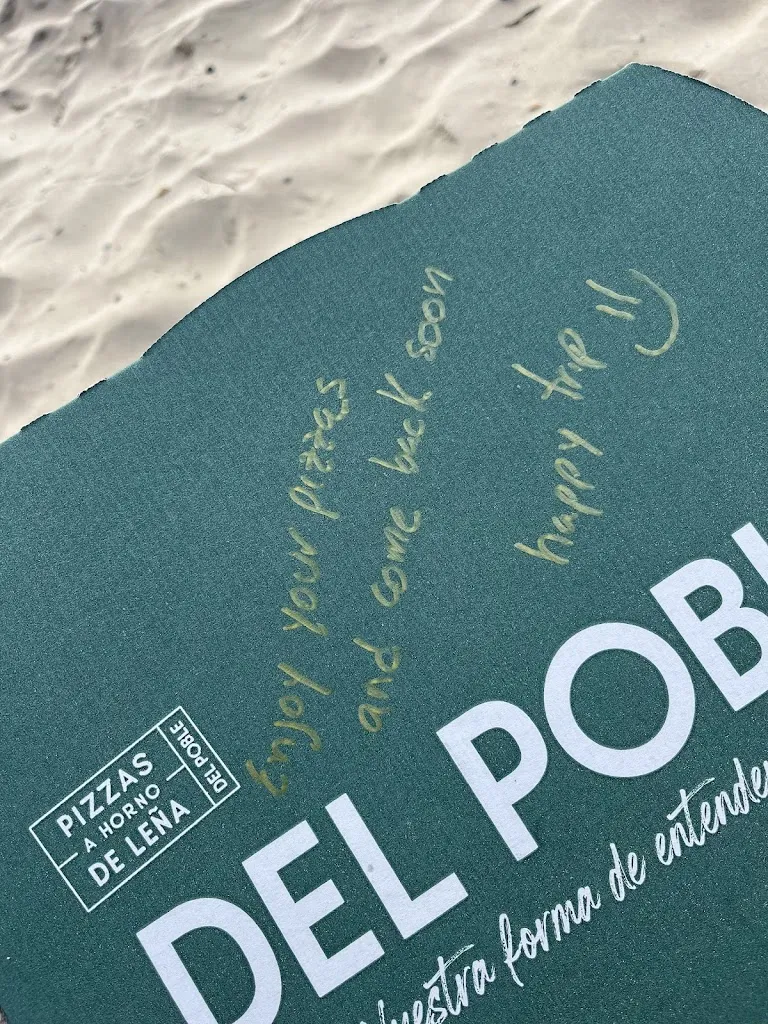 Enjoy your pizzas
and come back soon
happy trip
PIZZAS
A HORNO
DE LEÑA
DEL POBLE
DEL POBL
Nuestra forma de entender